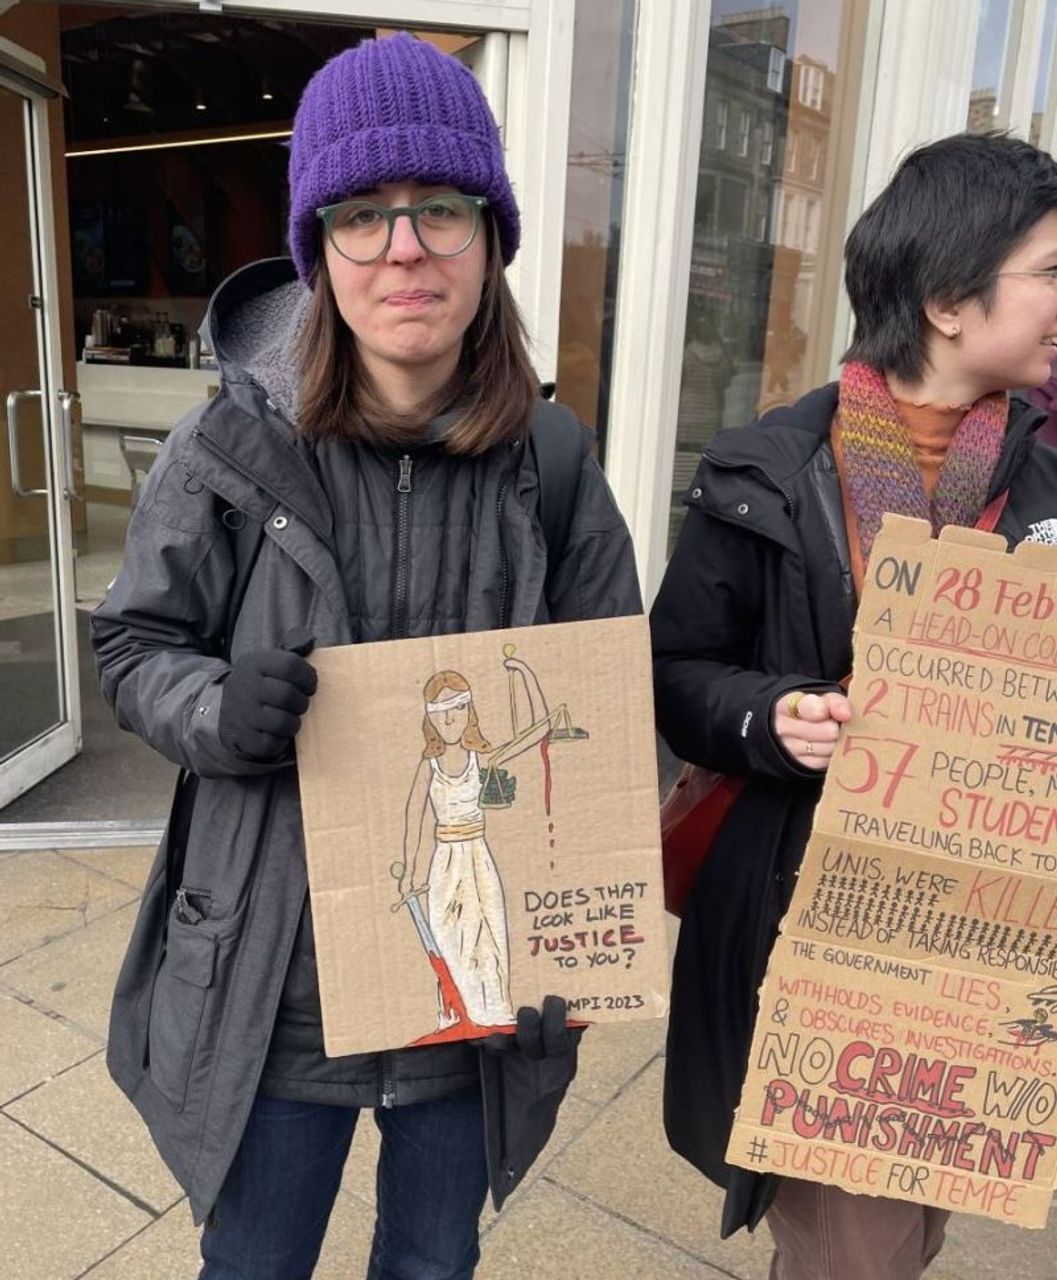 DOES THAT
LOOK LIKE
JUSTICE
TO YOU?
MPI 2023
ON 28 Feb
A HEAD-ON CO
OCCURRED BETW
2 TRAINS IN TEM
57 PEOPLE, M
STUDEN
TRAVELLING BACK TO
UNIS, WERE KILLE
INSTEAD OF TAKING RESPONSI
THE GOVERNMENT LIES,
WITHHOLDS EVIDENCE,
& OBSCURES INVESTIGATIONS.
NO CRIME W/O
PUNISHMENT
#JUSTICE FOR TEMPE
THE